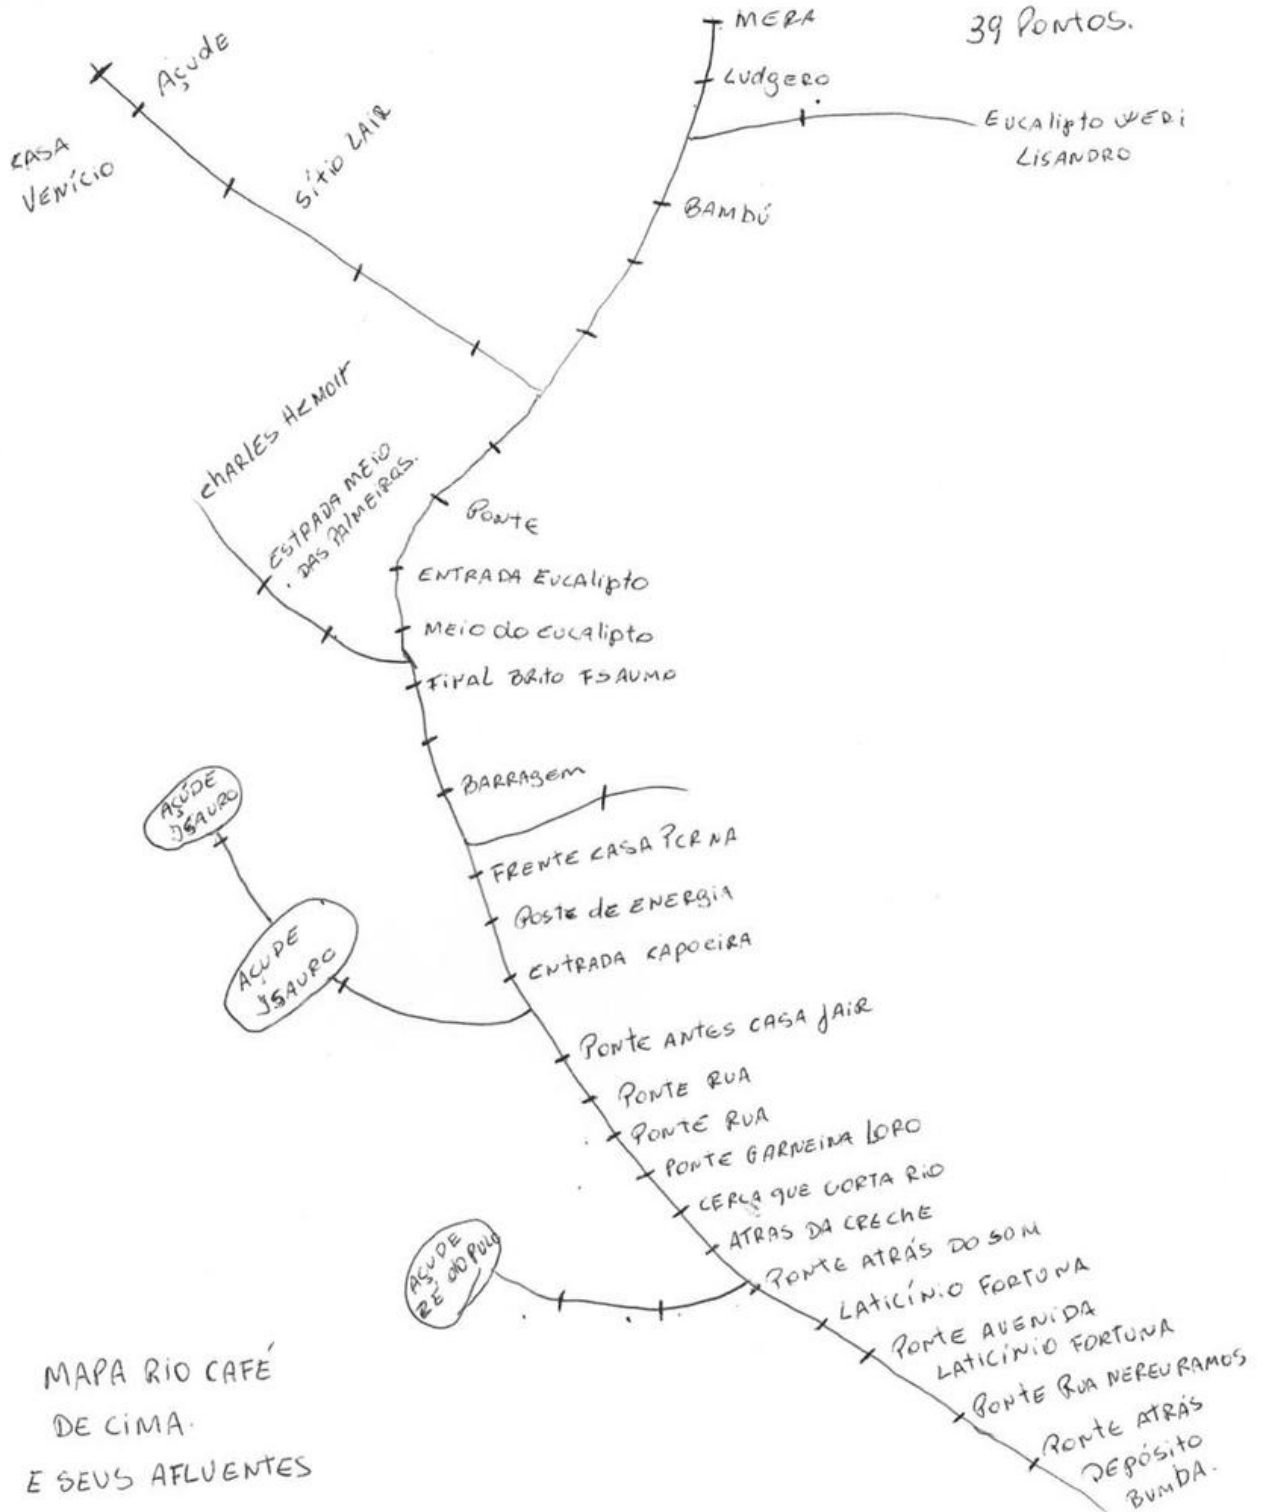 MERA
39 PONTOS.
AÇUDE
LUDGERO
EUCALIPTO WERI
LISANDRO
CASA
VENÍCIO
SÍTIO LAIR
BAMBÚ
CHARLES
ESTRADA MEIO
DAS PALMEIRAS.
PONTE
ENTRADA EUCALIPTO
MEIO DO EUCALIPTO
FINAL BRITO
BARRAGEM
AÇÚDE
JSAURO
FRENTE CASA PERNA
POSTE DE ENERGIA
ENTRADA CAPOEIRA
AÇUDE
JSAURO
PONTE ANTES CASA JAIR
PONTE RUA
PONTE RUA
PONTE LORO
CERCA QUE CORTA RIO
ATRAS DA CRECHE
PONTE ATRÁS DO SOM
AÇUDE
ZÉ
LATICÍNIO FORTUNA
PONTE AVENIDA
LATICÍNIO FORTUNA
PONTE RUA NEREU RAMOS
PONTE ATRÁS
DEPÓSITO
BUMDA.
MAPA RIO CAFÉ
DE CIMA.
E SEUS AFLUENTES